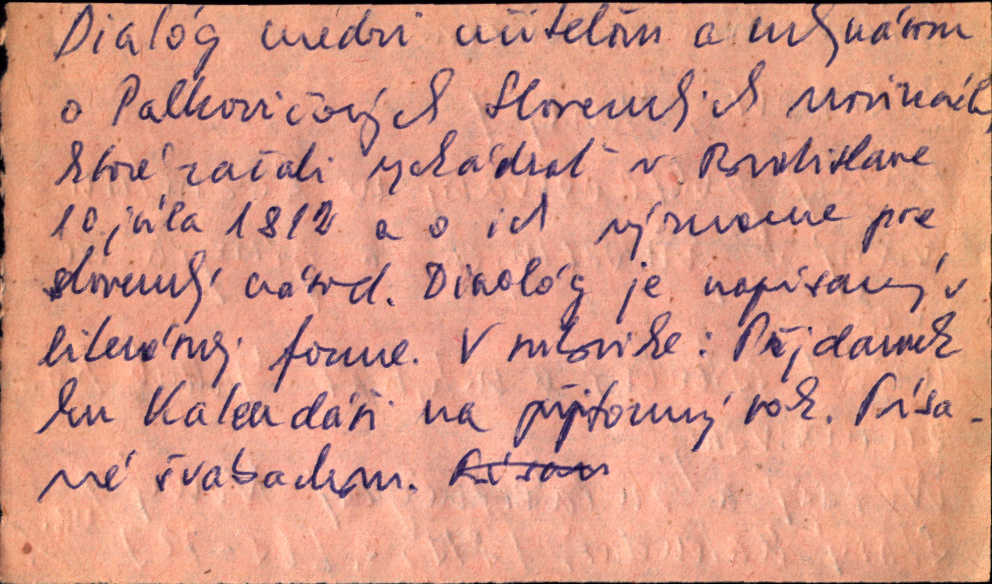 Dialóg medzi učiteľom a mlynárom
o Palkovičových Slovenských novinách,
ktoré začali vychádzať v Bratislave
10 júla 1812 a o ich význame pre
slovenský národ. Dialóg je napísaný v
literárnej forme. V rubrike: Přjdawek
ku Kalendáři na přjtomný rok. Písa-
né švabachom. Písan